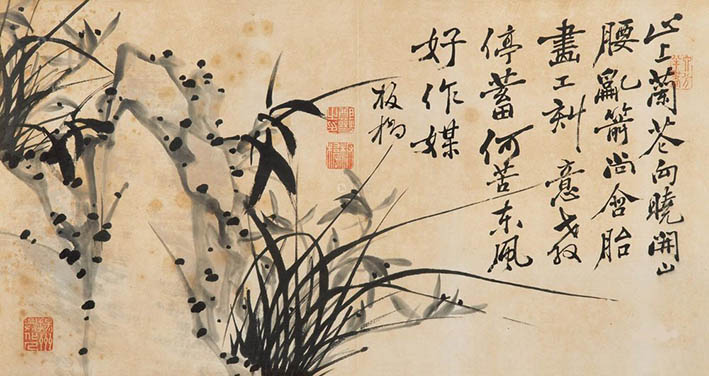 山上蘭花向曉開山
腰亂箭尚含胎
畫工刻意教
停蓄何苦東風
好作媒
板橋